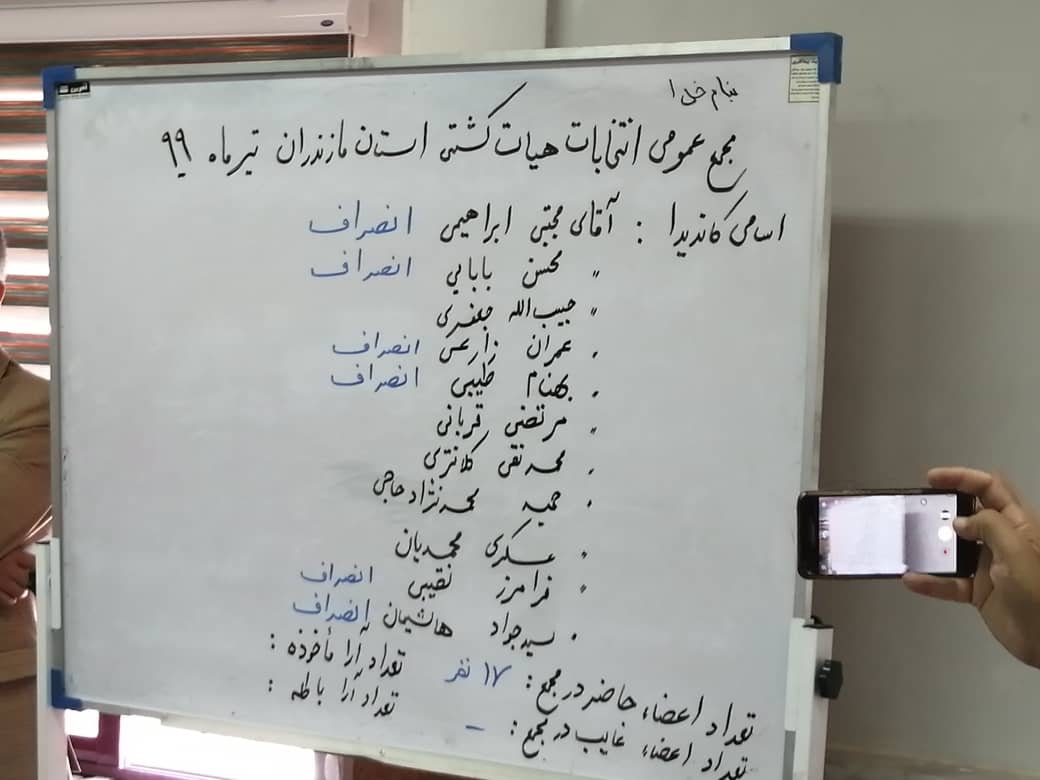 بنام خدا
مجمع عمومی انتخابات هیات کشتی استان مازندران تیر ماه ۹۹
اسامی کاندیدا : آقای مجتبی ابراهیمی انصراف
" محسن بابایی انصراف
" حبیب الله جعفری
" عمران زارعی انصراف
" بهنام طیبی انصراف
" مرتضی قربانی
" محمدتقی کلانتری
" حمید محمدنژاد حاجی
" عسکری محمدیان
" فرامرز نقیبی انصراف
" سیدجواد هاشمیان انصراف
تعداد اعضاء حاضر در مجمع : ۱۷ نفر تعداد آرا مأخوذه :
تعداد اعضاء غایب در مجمع : - تعداد آرا باطله :